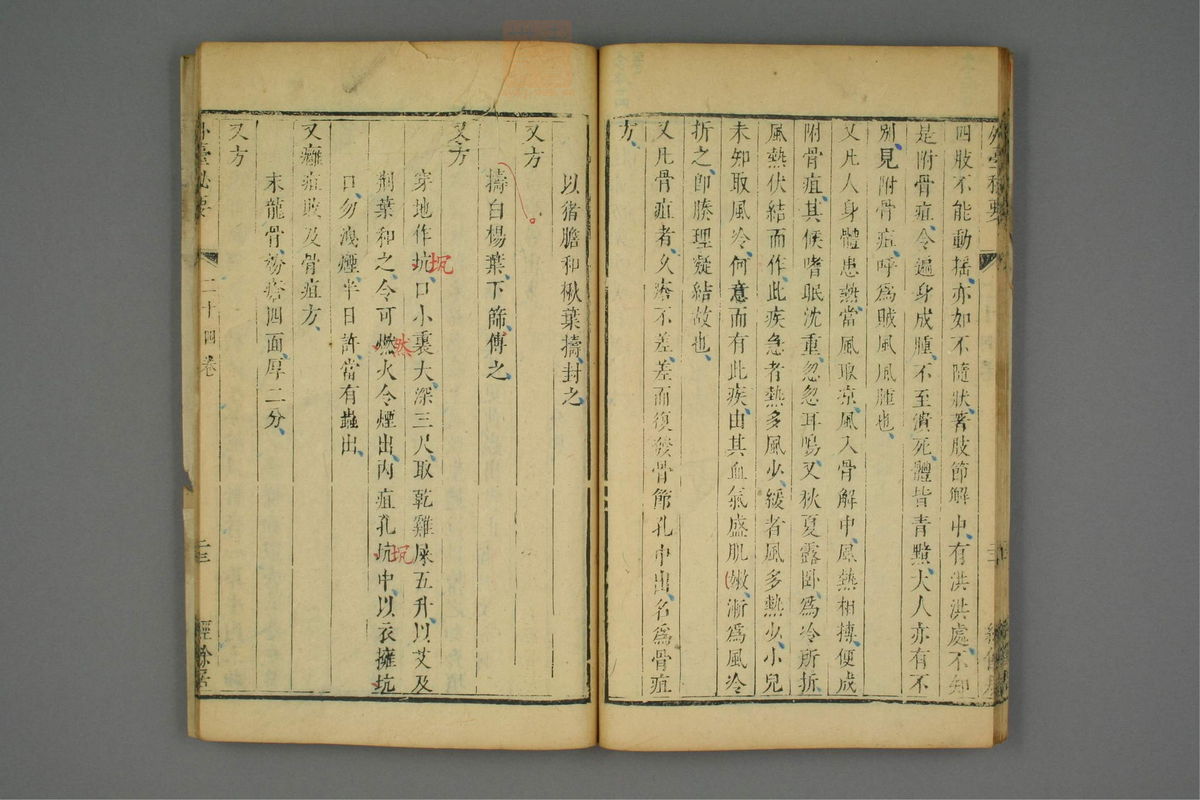 四肢不能動揺、亦如不隨狀、著肢節解中、有洪洪處、不知
是附骨疽、令遍身成腫、不至潰死、體皆青黯、大人亦有不
別、見附骨疽、呼爲賊風風腫也、
又凡人身體患熱、當風取凉、風入骨解中、風熱相搏、便成
附骨疽、其候嗜眠沈重、忽忽耳鳴、又秋夏露臥、爲冷所折、
風熱伏結而作、此疾急者、熱多風少、緩者風多熱少、小兒
未知取風冷、何意而有此疾、由其血氣盛肌嫩、漸爲風冷
折之、卽腠理凝結故也、
又凡骨疽者、久瘡不差、差而復發、骨節孔中出、名爲骨疽
方、
以猪膽和楸葉擣、封之、
又方
擣白楊葉、下篩、傅之、
又方
穿地作坑、口小裏大、深三尺、取乾雞屎五升、以艾及
坈
荆葉和之、令可燃火、令煙出、内疽孔坑中、以衣擁坑
然
坈
口、勿洩煙、半日許、當有蟲出、
又癰疽敗及骨疽方、
末龍骨、粉瘡四面厚二分、
又方
外臺秘要
二十四卷
二三
經餘居